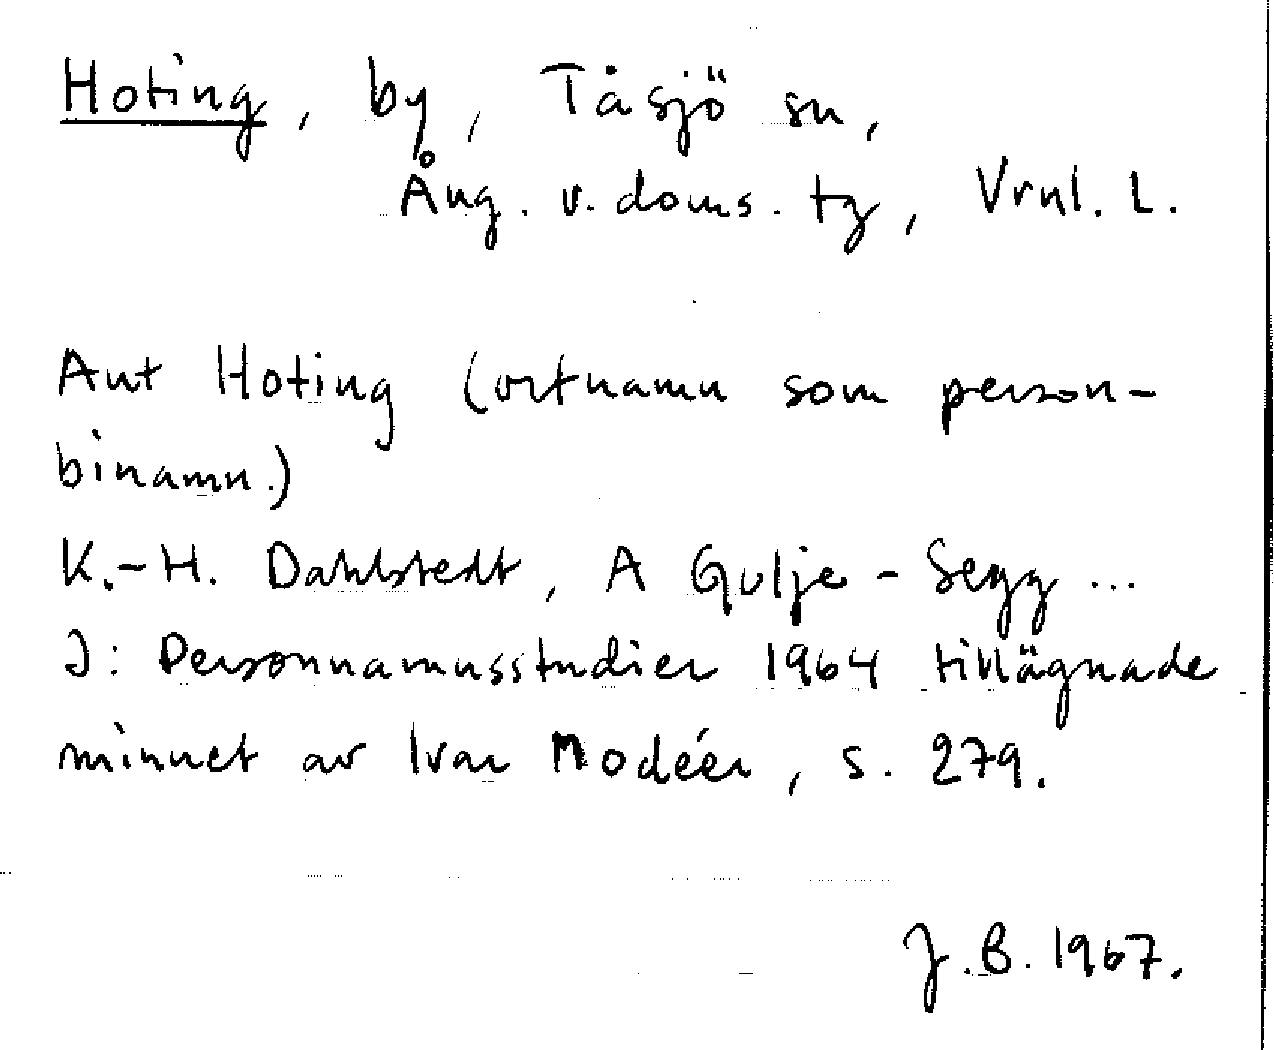 Hoting, by, Tåsjö sn,
Ång. v. doms. tg, Vrnl. L.
Ant Hoting (ortnamn som person-
binamn.)
K.-H. Dahlstedt, A Gulje - Segg ...
I: Personnamnsstudier 1964 tillägnade
minnet av Ivar Modéer, s. 279.
J.B. 1967.